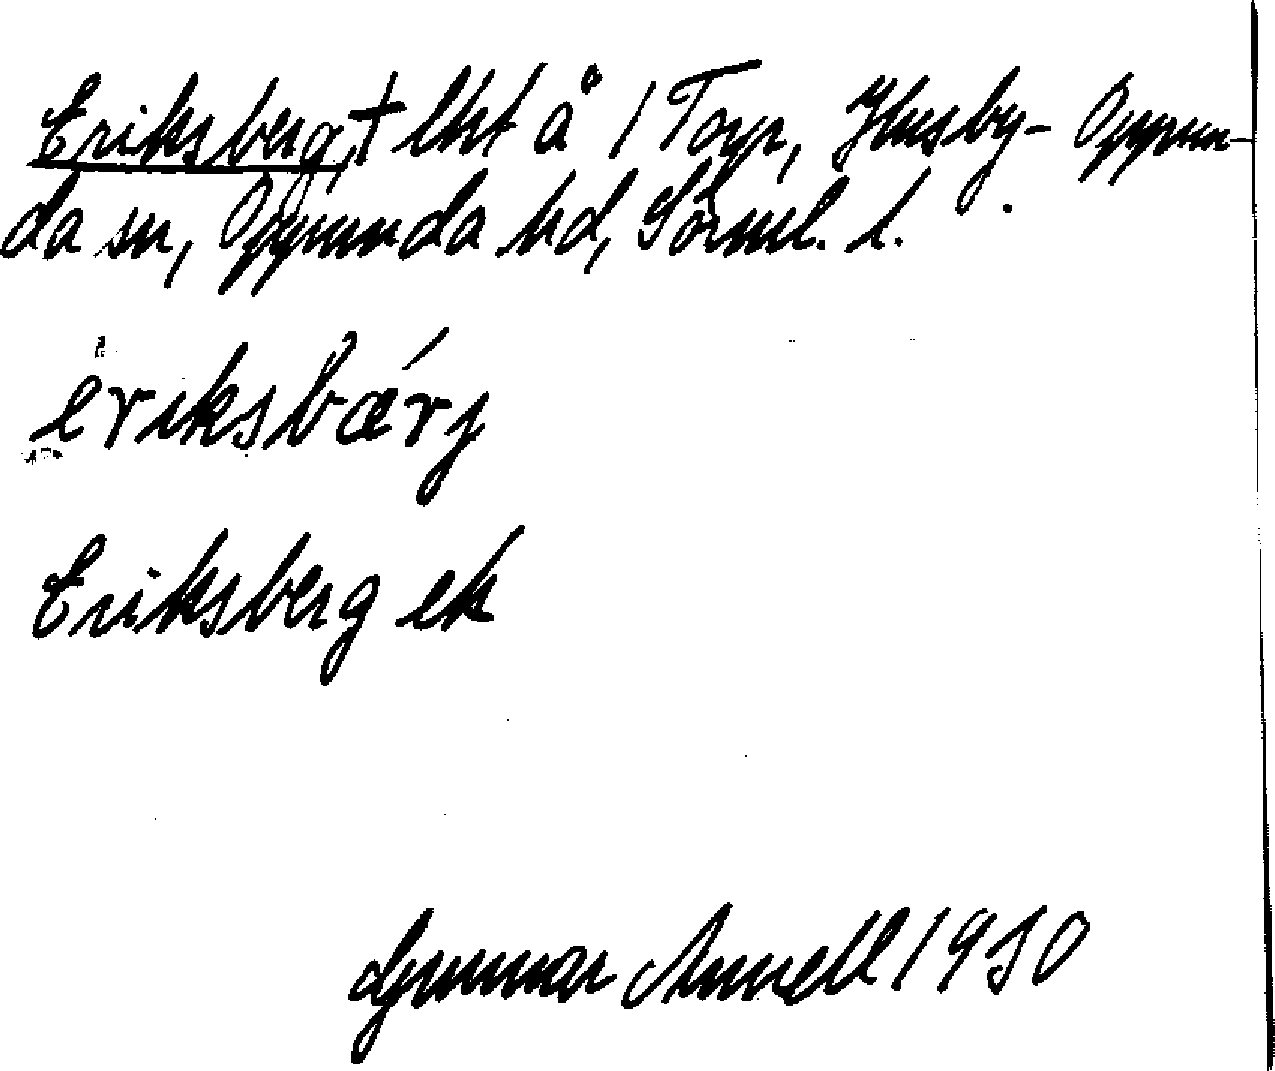 Eriksberg, † lht å 1 Torp, Husby-Oppun-
da sn, Oppunda hd, Sörml. l.
èriksbær´j
Eriksberg ek
Gunnar Annell 1930